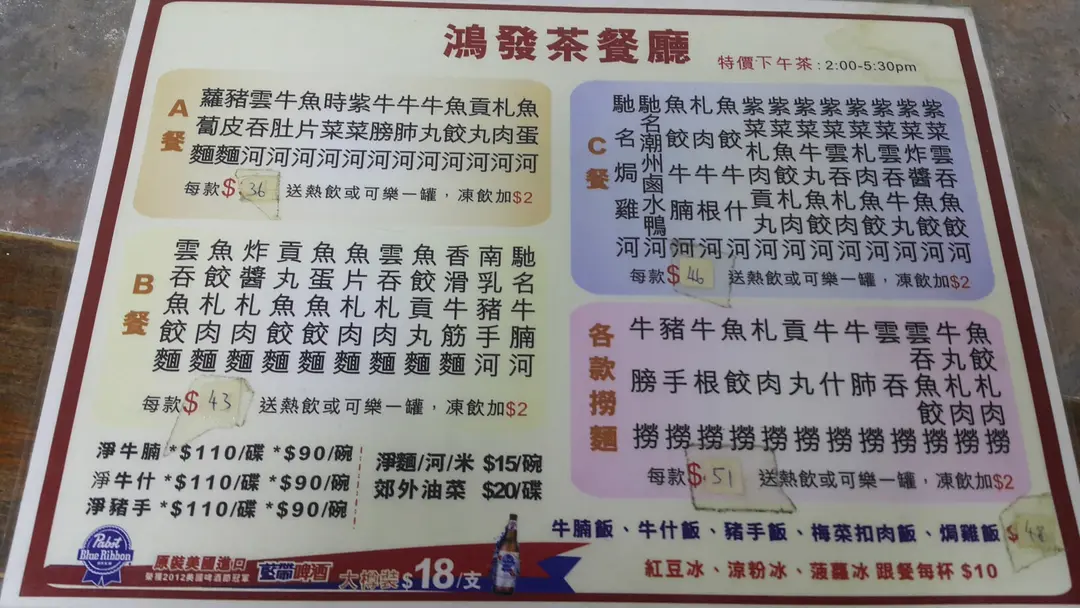 鴻發茶餐廳
特價下午茶：2:00-5:30pm
A餐
蘿蔔麵
豬皮麵
雲吞河
牛肚河
魚片河
時菜河
紫菜河
牛膀河
牛肺河
牛丸河
魚餃河
貢丸河
札肉河
魚蛋河
每款$36 送熱飲或可樂一罐，凍飲加$2
B餐
雲吞魚餃麵
魚餃札肉麵
炸醬札肉麵
貢丸魚餃麵
魚蛋魚餃麵
魚片札肉麵
雲吞札肉麵
魚餃貢丸麵
香滑牛筋麵
南乳豬手河
馳名牛腩河
每款$43 送熱飲或可樂一罐，凍飲加$2
C餐
馳名焗雞河
馳名潮州鹵水鴨河
魚餃牛腩河
札肉牛根河
魚餃牛什河
紫菜札肉貢丸河
紫菜魚餃札肉河
紫菜牛丸魚餃河
紫菜雲吞札肉河
紫菜札肉魚餃河
紫菜雲吞牛丸河
紫菜炸醬魚餃河
紫菜雲吞魚餃河
每款$46 送熱飲或可樂一罐，凍飲加$2
各款撈麵
牛膀撈
豬手撈
牛根撈
魚餃撈
札肉撈
貢丸撈
牛什撈
牛肺撈
雲吞撈
雲吞魚餃撈
牛丸札肉撈
魚餃札肉撈
每款$51 送熱飲或可樂一罐，凍飲加$2
淨牛腩 *$110/碟 *$90/碗
淨牛什 *$110/碟 *$90/碗
淨豬手 *$110/碟 *$90/碗
淨麵/河/米 $15/碗
郊外油菜 $20/碟
牛腩飯、牛什飯、豬手飯、梅菜扣肉飯、焗雞飯 $48
紅豆冰、涼粉冰、菠蘿冰 跟餐每杯 $10
Pabst
Blue Ribbon
原裝美國進口
榮獲2012美國啤酒節冠軍
藍帶啤酒
大樽裝 $18/支